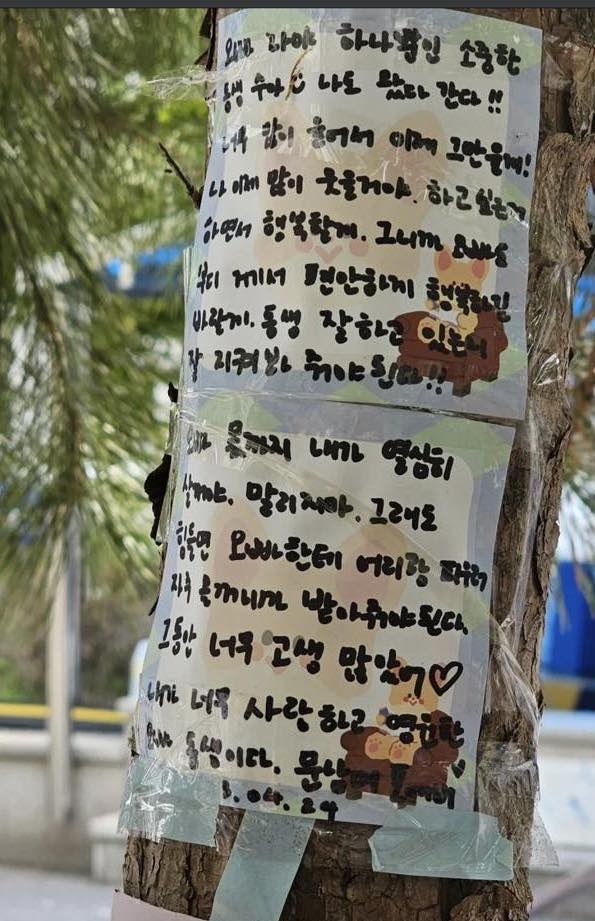 하나뿐인 소중한
동생 수아 나도 왔다 간다!!
너무 많이 울어서 이제 그만울게!
나 이제 많이 웃을거야. 하고싶은거
하면서 행복할게. 그니까 오빠도
부디 거기서 편안하게 행복하길
바랄게. 동생 잘하고 있는지
잘 지켜봐 줘야된다!!
오빠 몫까지 내가 열심히
살거야. 말리지마. 그래도
힘들면 오빠한테 어리광 피우러
자주 올꺼니까 받아줘야된다.
그동안 너무 고생 많았어♡
내가 너무 사랑하고 영원한
오빠 동생이다.
04.24